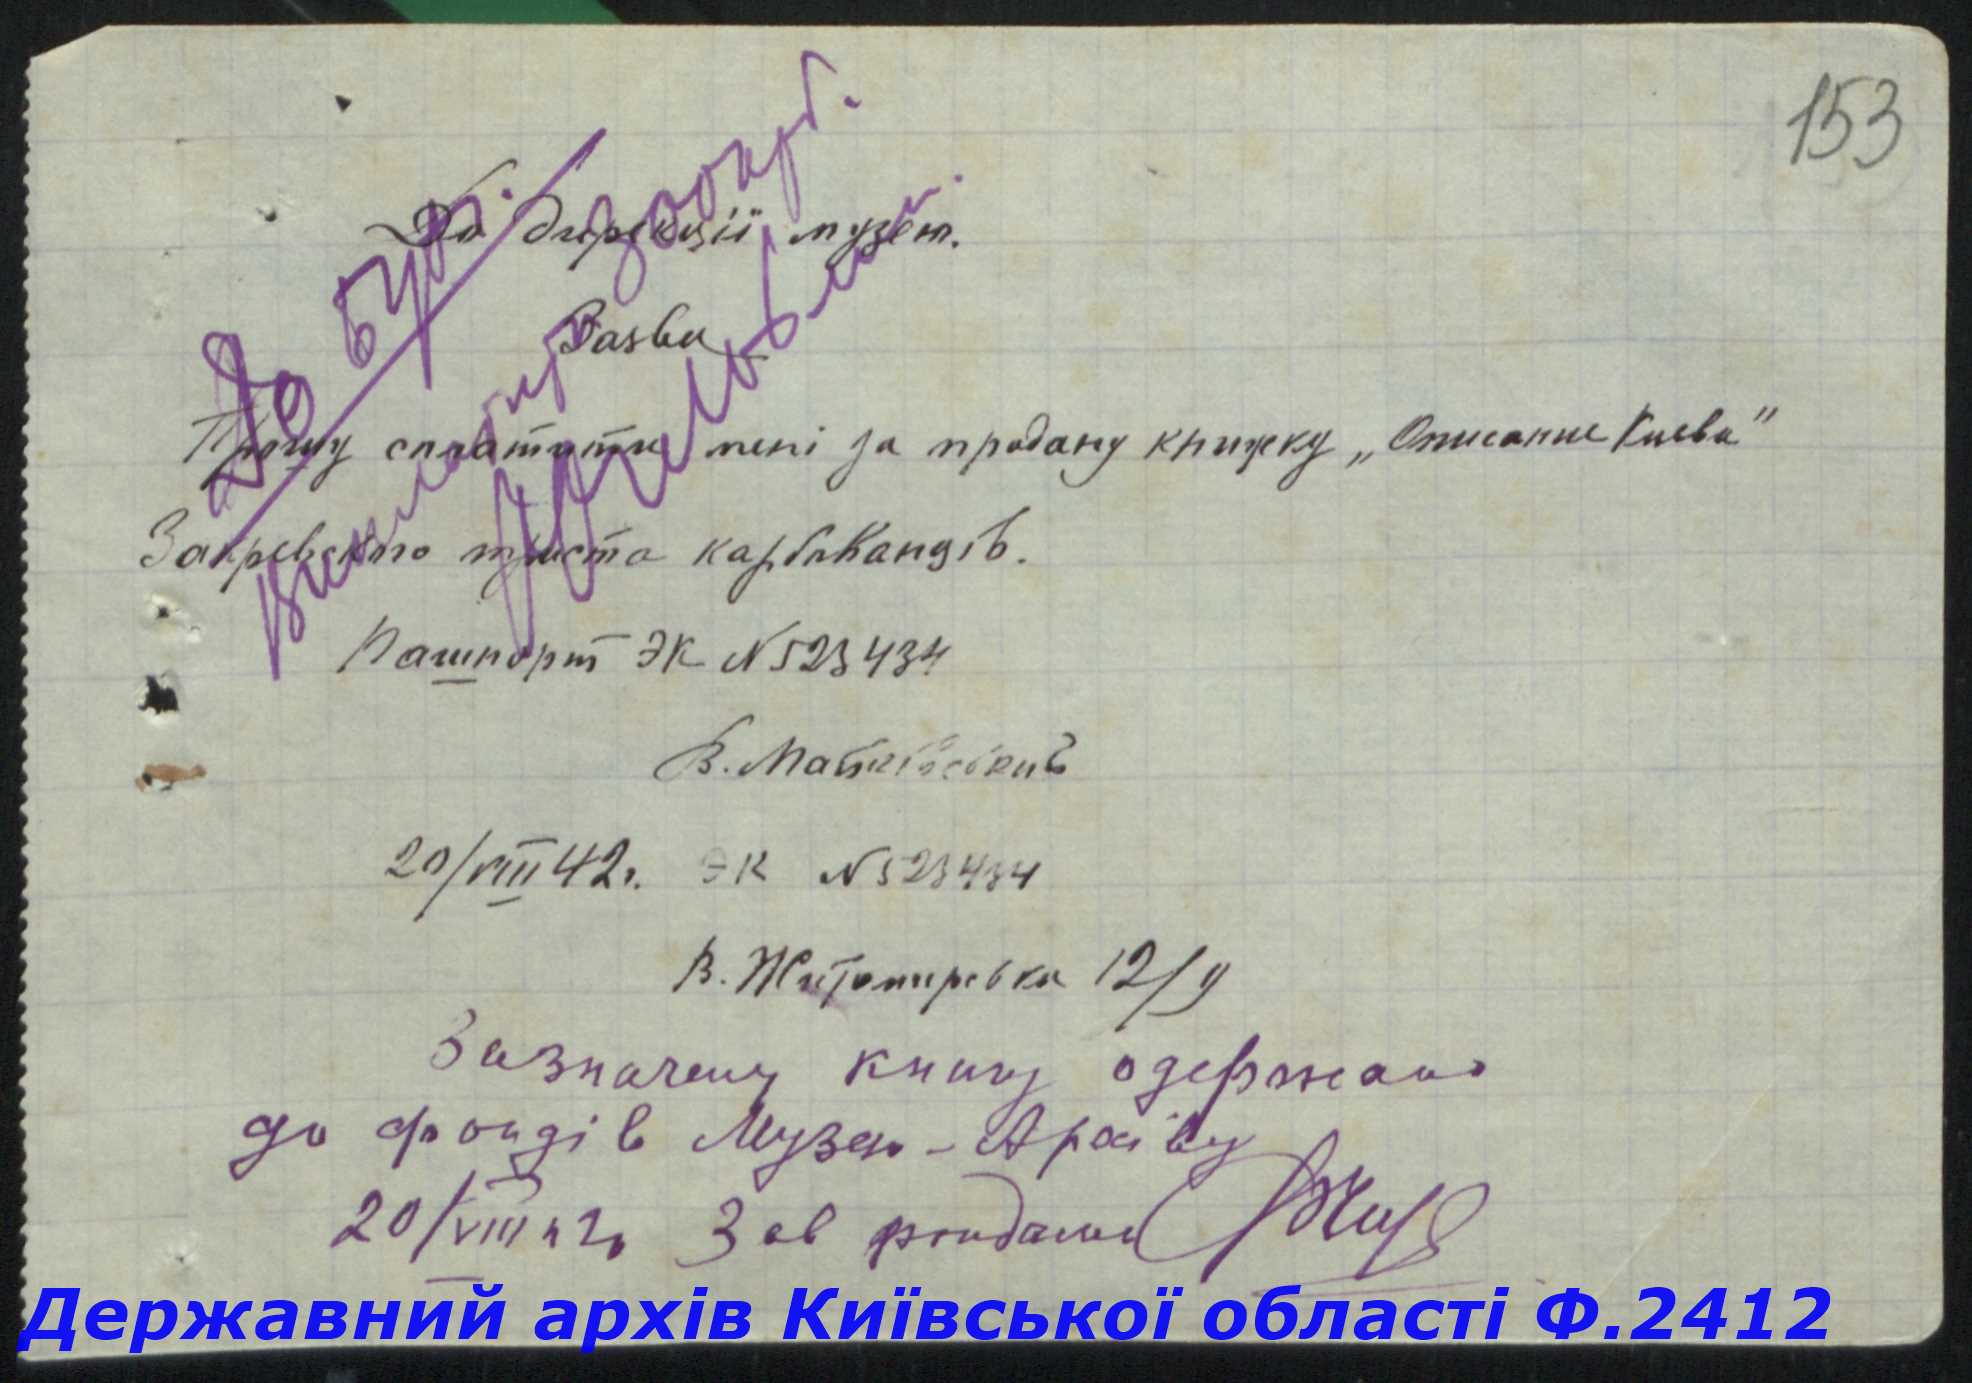 153
До дирекції музею.
Заява
Прошу сплатити мені за продану книжку „Описание Киева"
Закревского триста карбованців.
Пашпорт ЭК N 523434
В.
20/VIII 42 г. ЭК N 523434
В. Житомирська 12/9
Зазначену книгу одержано
до фондів Музею-Архіву
20/VIII 42 Зав фондами
До бух.
Виплатить 300 крб.
Державний архів Київської області Ф.2412